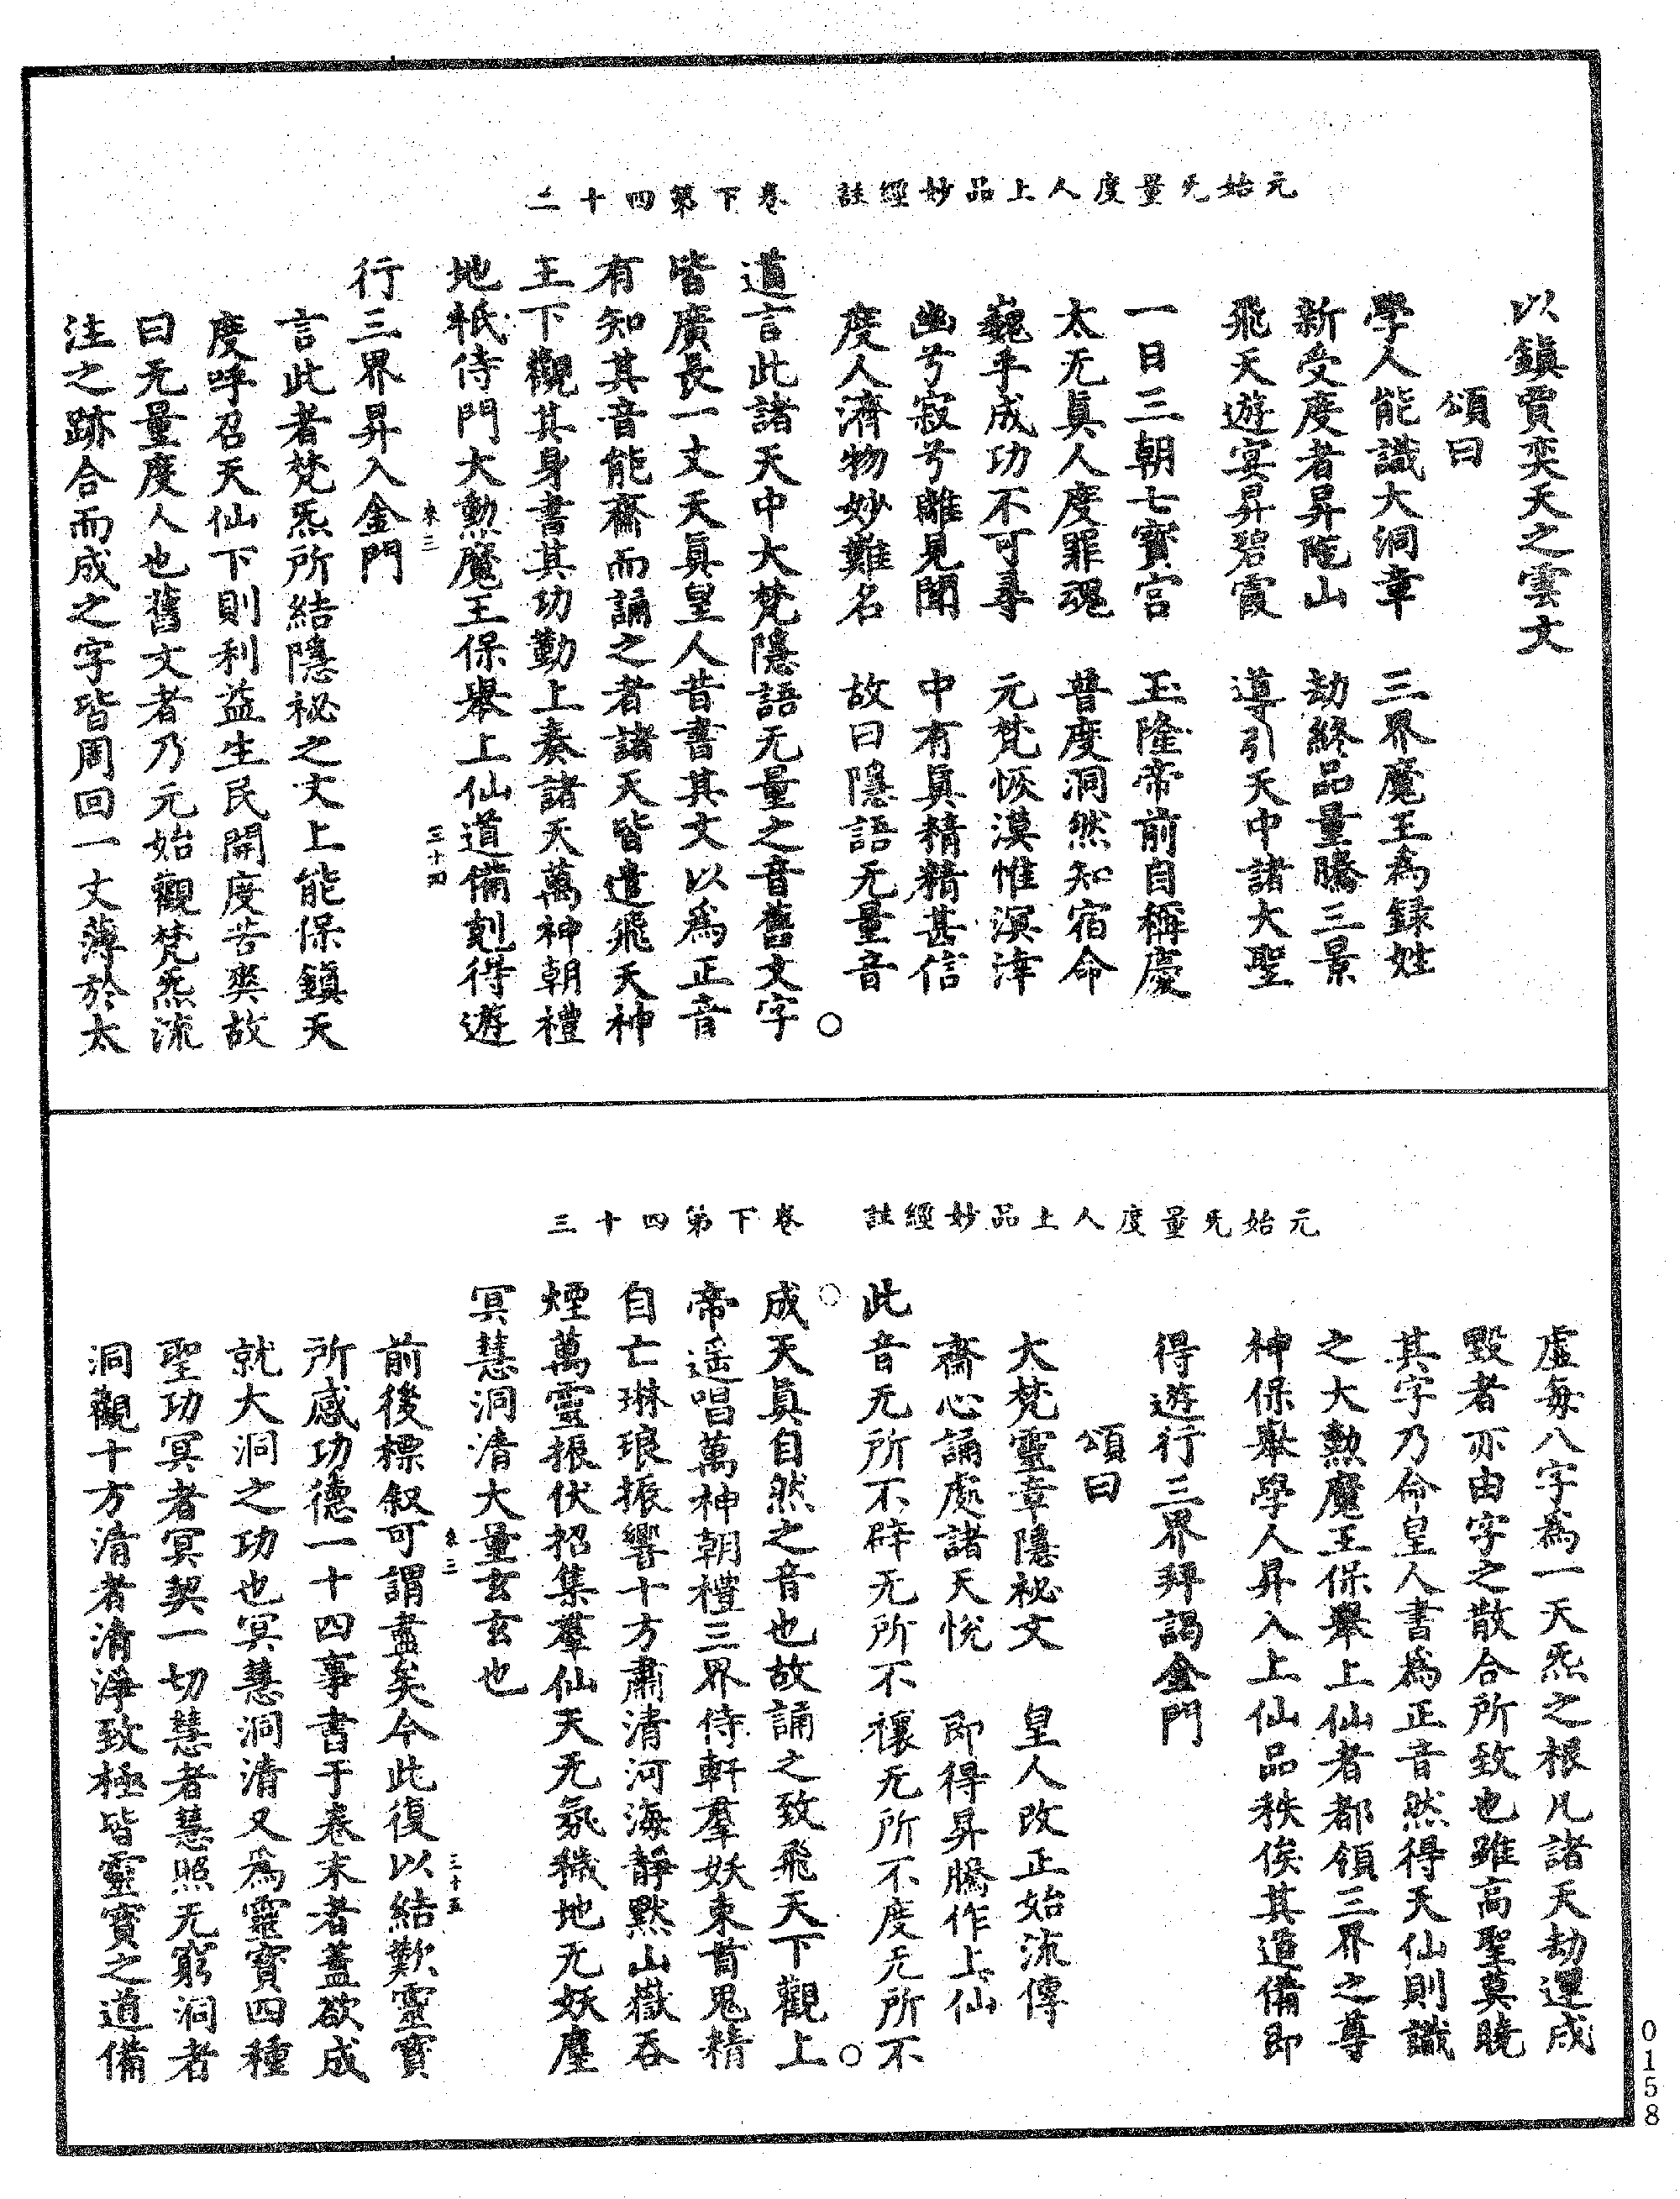 元始无量度人上品妙經註　卷下第四十二
以鎮賈奕天之雲文
頌曰
學人能識大洞章　三界魔王為錄姓
新受度者昇陀山　劫終品量騰三景
飛天遊宴昇碧霞　導引天中諸大聖
一日三朝七寶宮　玉隆帝前自稱慶
太无眞人度罪魂　普度洞然知宿命
巍乎成功不可尋　元梵恢漠惟溟涬
幽兮寂兮離見聞　中有眞精精甚信
度人濟物妙難名　故曰隱語无量音
○
道言此諸天中大梵隱語无量之音舊文字
皆廣長一丈天眞皇人昔書其文以為正音
有知其音能齋而誦之者諸天皆遣飛天神
王下觀其身書其功勤上奏諸天萬神朝禮
地祇侍門大勳魔王保舉上仙道備剋得遊
來三　三十四
行三界昇入金門
言此者梵炁所結隱祕之文上能保鎮天
度呼召天仙下則利益生民開度苦爽故
曰无量度人也舊文者乃元始觀梵炁流
注之跡合而成之字皆周回一丈薄於太
元始无量度人上品妙經註　卷下第四十三
虛每八字為一天炁之根凡諸天劫運成
毀者亦由字之散合所致也雖高聖莫曉
其字乃命皇人書為正音然得天仙則識
之大勲魔王保舉上仙者都領三界之尊
神保舉學人昇入上仙品秩俟其道備即
得遊行三界拜謁金門
頌曰
大梵靈章隱祕文　皇人改正始流傳
齋心誦處諸天悅　即得昇騰作上仙
此音无所不辟无所不禳无所不度无所不
○　○
成天眞自然之音也故誦之致飛天下觀上
帝遥唱萬神朝禮三界侍軒羣妖束首鬼精
自亡琳琅振響十方肅清河海靜默山嶽吞
煙萬靈振伏招集羣仙天无氛穢地无妖塵
冥慧洞清大量玄玄也
來三　三十五
前後標叙可謂盡矣今此復以結歎靈寶
所感功德一十四事書于卷末者蓋欲成
就大洞之功也冥慧洞清又為靈寶四種
聖功冥者冥契一切慧者慧照无窮洞者
洞觀十方清者清淨致極皆靈寶之道備
0158